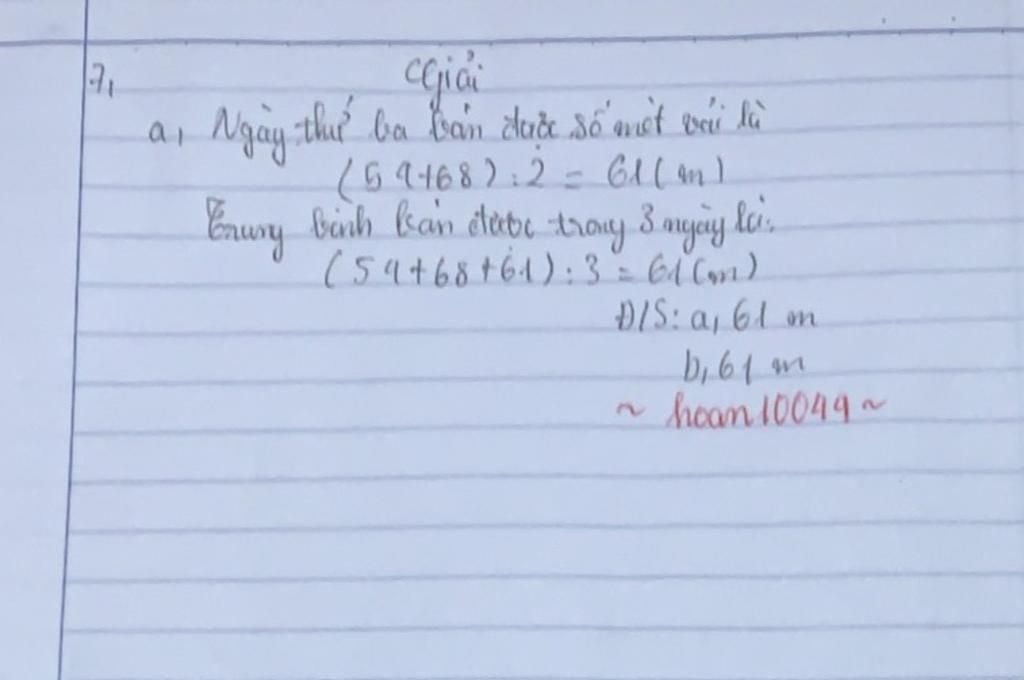 7,
Giải
a, Ngày thứ ba bán được số mét vải là
(54+68):2 = 61(m)
Trung bình bán được trong 3 ngày là:
(54+68+61):3 = 61(m)
Đ/S: a, 61 m
b, 61 m
~ hoan10049 ~